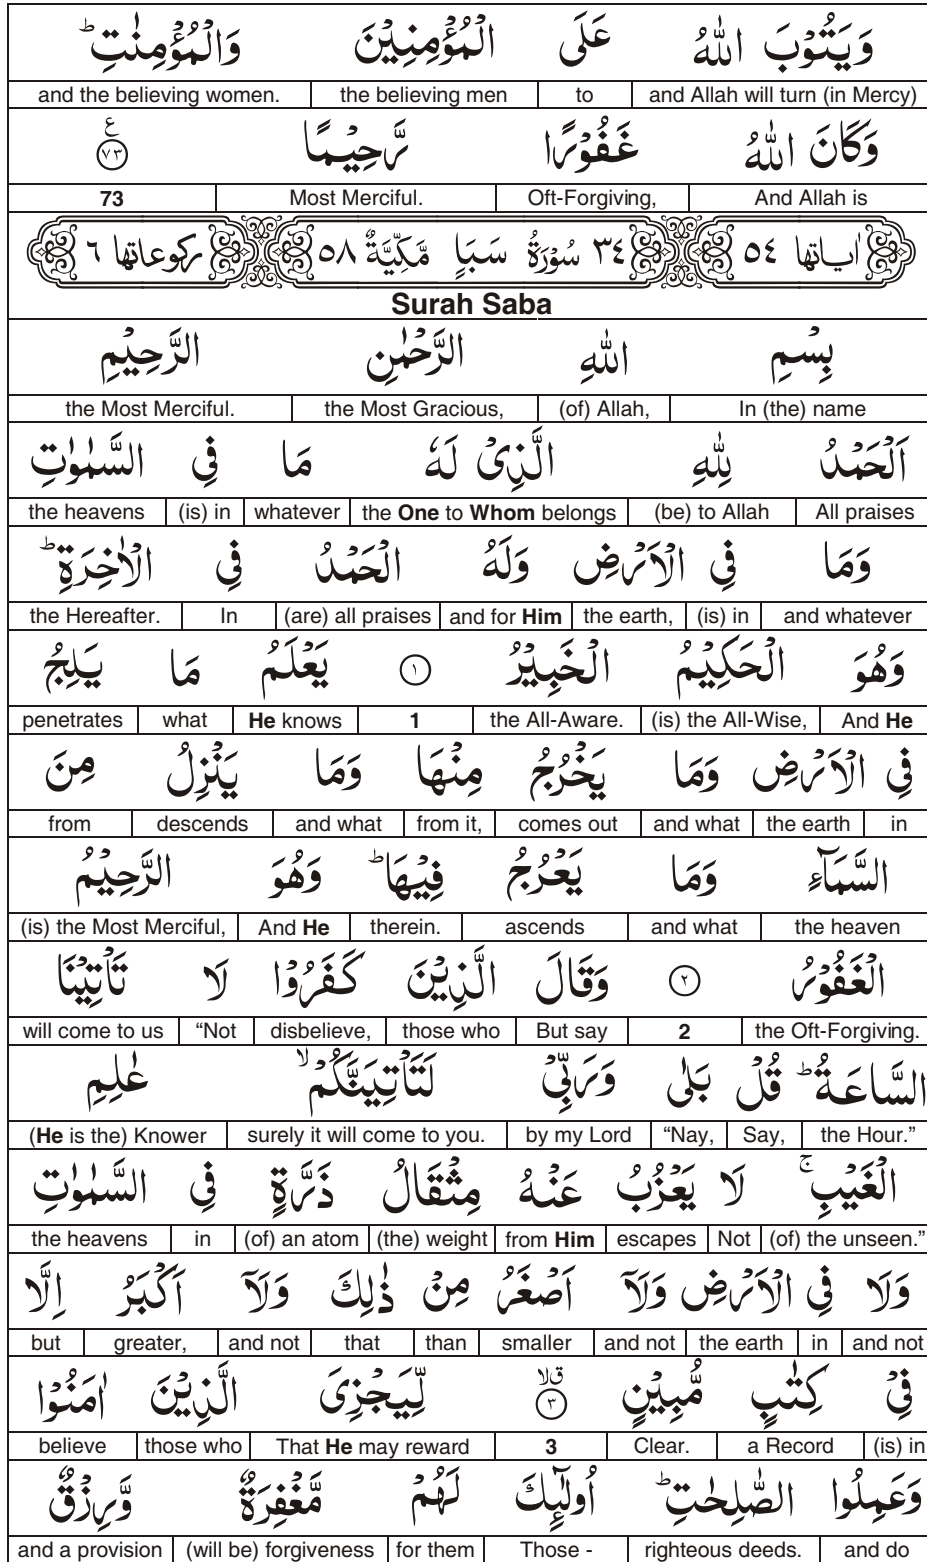 وَيَتُوۡبَ اللّٰهُ عَلَى الۡمُؤۡمِنِيۡنَ وَالۡمُؤۡمِنٰتِ ؕ
and Allah will turn (in Mercy) to the believing men and the believing women.
وَكَانَ اللّٰهُ غَفُوۡرًا رَّحِيۡمًا ﴿۷۳﴾ ع
And Allah is Oft-Forgiving, Most Merciful. 73
اٰيـاتها ٥٤ ٣٤ سُوۡرَةُ سَبَاٍ مَّكِّيَّةٌ ٥٨ ركوعاتها ٦
Surah Saba
بِسۡمِ اللّٰهِ الرَّحۡمٰنِ الرَّحِيۡمِ
In (the) name (of) Allah, the Most Gracious, the Most Merciful.
اَلۡحَمۡدُ لِلّٰهِ الَّذِىۡ لَهٗ مَا فِى السَّمٰوٰتِ
All praises (be) to Allah the One to Whom belongs whatever (is) in the heavens
وَمَا فِى الۡاَرۡضِ وَلَهُ الۡحَمۡدُ فِى الۡاٰخِرَةِ ؕ
and whatever (is) in the earth, and for Him (are) all praises In the Hereafter.
وَهُوَ الۡحَكِيۡمُ الۡخَبِيۡرُ ﴿۱﴾ يَعۡلَمُ مَا يَلِجُ
And He (is) the All-Wise, the All-Aware. 1 He knows what penetrates
فِى الۡاَرۡضِ وَمَا يَخۡرُجُ مِنۡهَا وَمَا يَنۡزِلُ مِنَ
in the earth and what comes out from it, and what descends from
السَّمَآءِ وَمَا يَعۡرُجُ فِيۡهَا ؕ وَهُوَ الرَّحِيۡمُ
the heaven and what ascends therein. And He (is) the Most Merciful,
الۡغَفُوۡرُ ﴿۲﴾ وَقَالَ الَّذِيۡنَ كَفَرُوۡا لَا تَاۡتِيۡنَا
the Oft-Forgiving. 2 But say those who disbelieve, “Not will come to us
السَّاعَةُ ؕ قُلۡ بَلٰى وَرَبِّىۡ لَتَاۡتِيَنَّكُمۡ ۙ عٰلِمِ
the Hour.” Say, “Nay, by my Lord surely it will come to you. (He is the) Knower
الۡغَيۡبِ ۚ لَا يَعۡزُبُ عَنۡهُ مِثۡقَالُ ذَرَّةٍ فِى السَّمٰوٰتِ
(of) the unseen.” Not escapes from Him (the) weight (of) an atom in the heavens
وَلَا فِى الۡاَرۡضِ وَلَاۤ اَصۡغَرُ مِنۡ ذٰلِكَ وَلَاۤ اَكۡبَرُ اِلَّا
and not in the earth and not smaller than that and not greater, but
فِىۡ كِتٰبٍ مُّبِيۡنٍ ﴿۳﴾ قلا لِّيَجۡزِىَ الَّذِيۡنَ اٰمَنُوۡا
(is) in a Record Clear. 3 That He may reward those who believe
وَعَمِلُوا الصّٰلِحٰتِ ؕ اُولٰٓٮِٕكَ لَهُمۡ مَّغۡفِرَةٌ وَّرِزۡقٌ
and do righteous deeds. Those - for them (will be) forgiveness and a provision